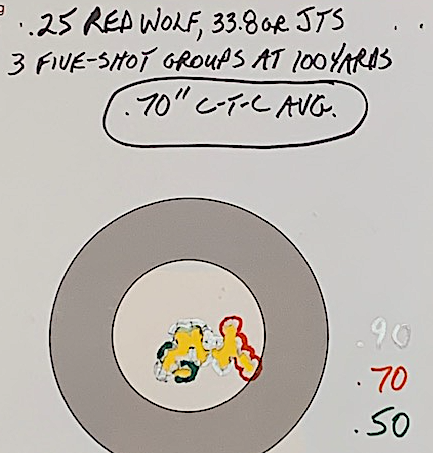 .25 RED WOLF, 33.8GR JTS
3 FIVE-SHOT GROUPS AT 100 YARDS
.70" C-T-C AVG.
.90
.70
.50